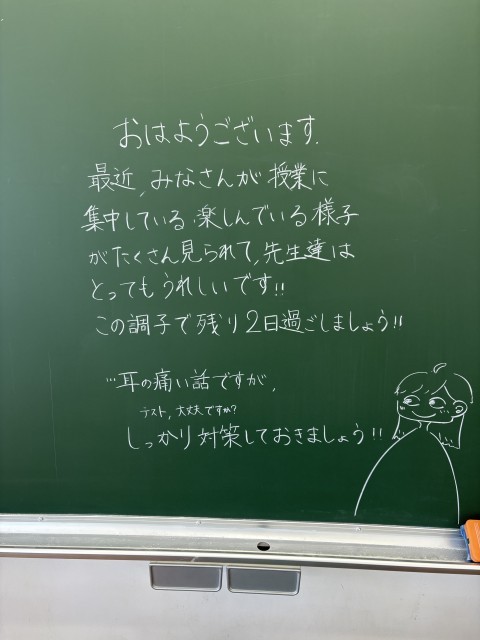 おはようございます.
最近,みなさんが授業に
集中している.楽しんでいる様子
がたくさん見られて,先生達は
とってもうれしいです!!
この調子で残り2日過ごしましょう!!
…耳の痛い話ですが,
テスト,大丈夫ですか?
しっかり対策しておきましょう!!